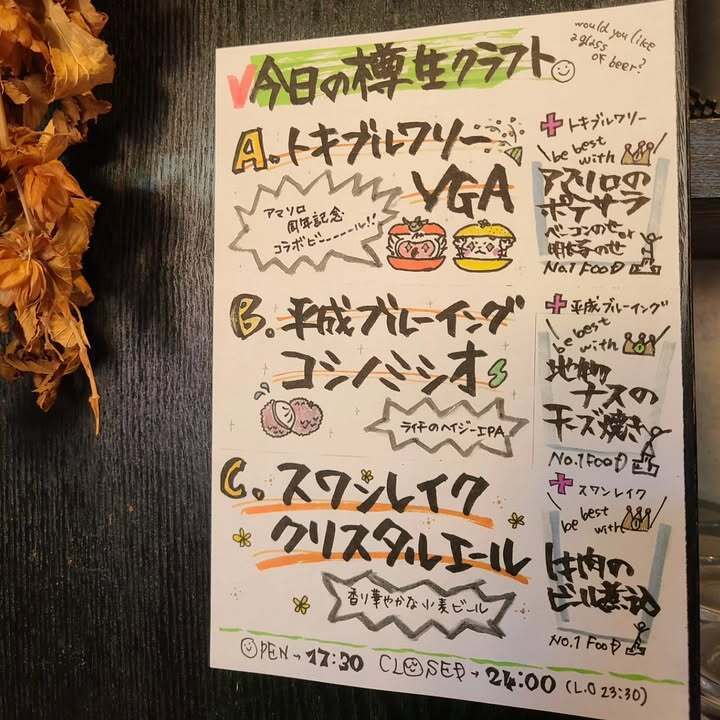 would you like
a glass
of beer?
今日の樽生クラフト
A. トキブルワリー
VGA
アマソロ
周年記念
コラボビーーーール!!
+ トキブルワリー
be best
with
アマソロの
ポテサラ
ベーコンのせor
明太子のせ
No.1 FOOD
B. 平成ブルーイング
コシノミシオ
ライチのヘイジーIPA
+ 平成ブルーイング
be best
with
地物
ナスの
チーズ焼き
No.1 FOOD
C. スワンレイク
クリスタルエール
香り華やかな小麦ビール
+ スワンレイク
be best
with
牛肉の
ビール煮込
No.1 FOOD
OPEN→17:30 CLOSED→24:00 (L.O 23:30)